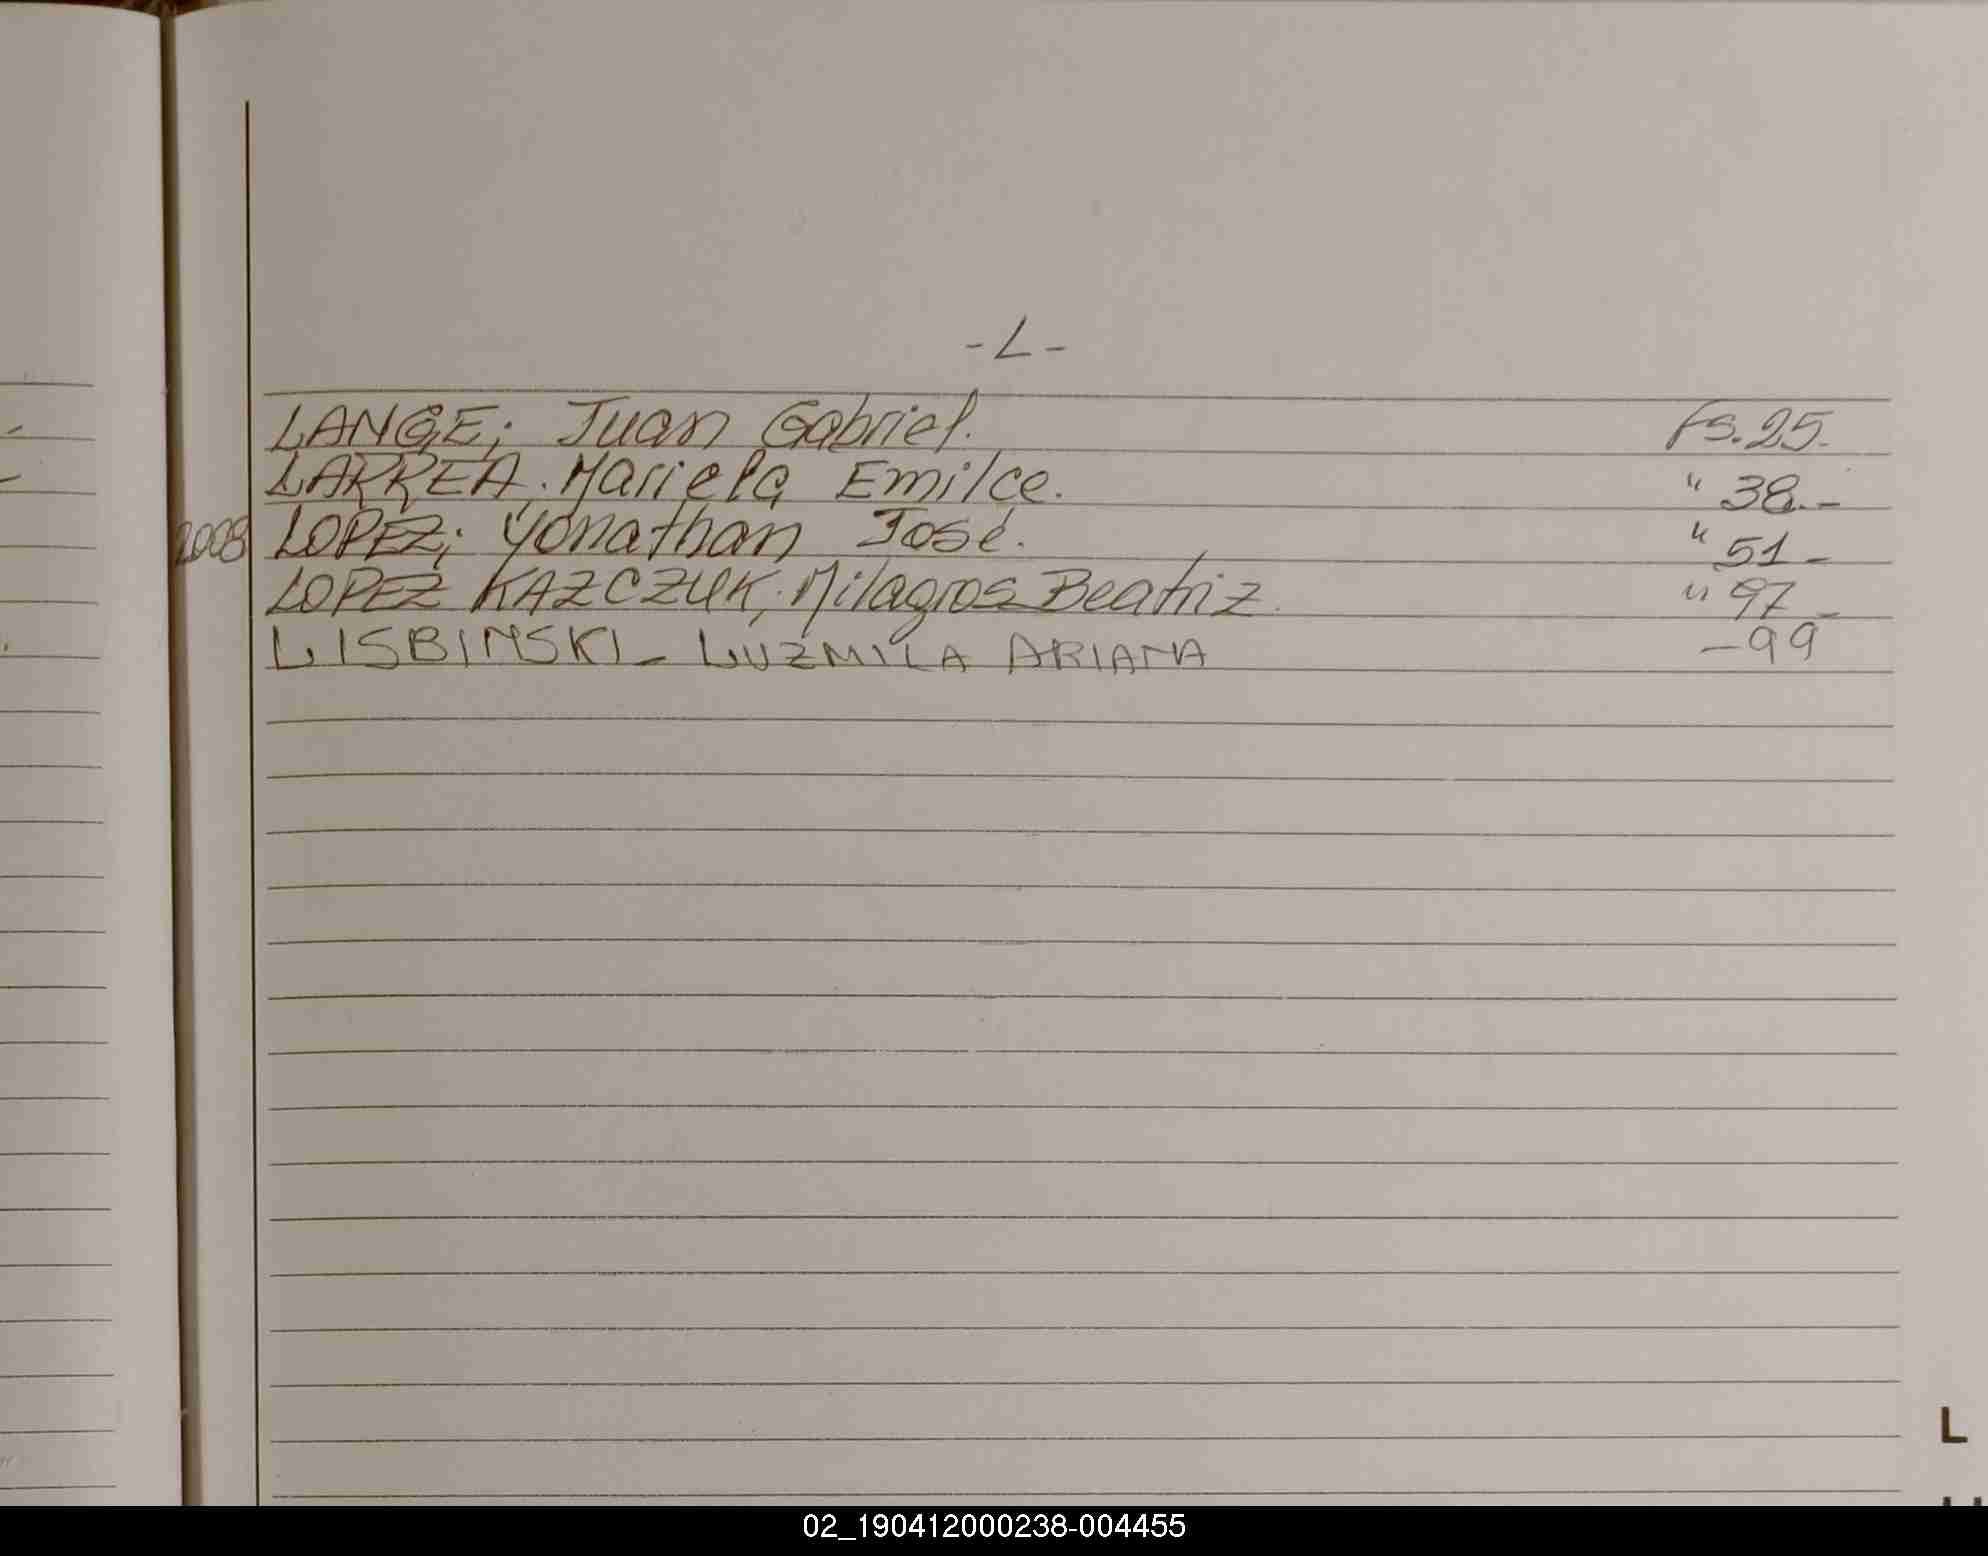 -L-
LANGE; Juan Gabriel. Fs. 25.-
LARREA. Mariela Emilce. " 38.-
2008 LOPEZ; Yonathan José. " 51-
LOPEZ KAZCZUK, Milagros Beatriz. " 97-
LISBINSKI- LUZMILA ARIANA -99
L
02_190412000238-004455